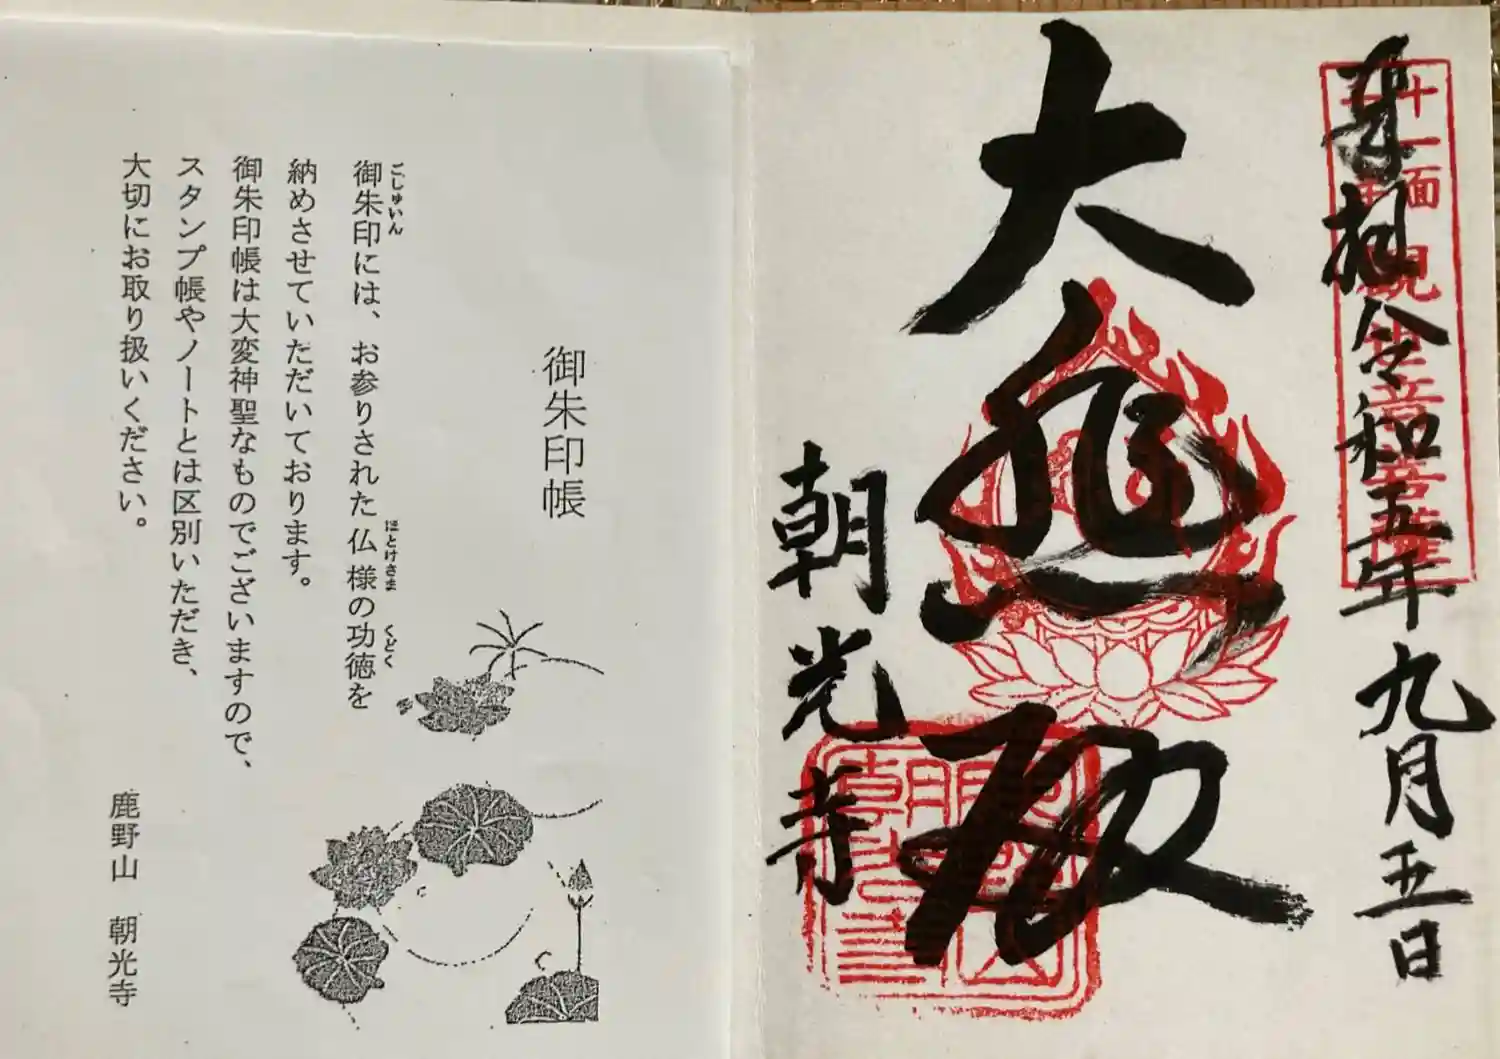 奉拝 令和五年九月五日
十一面観世音菩薩
大悲殿
朝光寺
御朱印帳
ごじゅいん
御朱印には、お参りされた仏様の功徳を
ほとけさま
くどく
納めさせていただいております。
御朱印帳は大変神聖なものでございますので、
スタンプ帳やノートとは区別いただき、
大切にお取り扱いください。
鹿野山 朝光寺